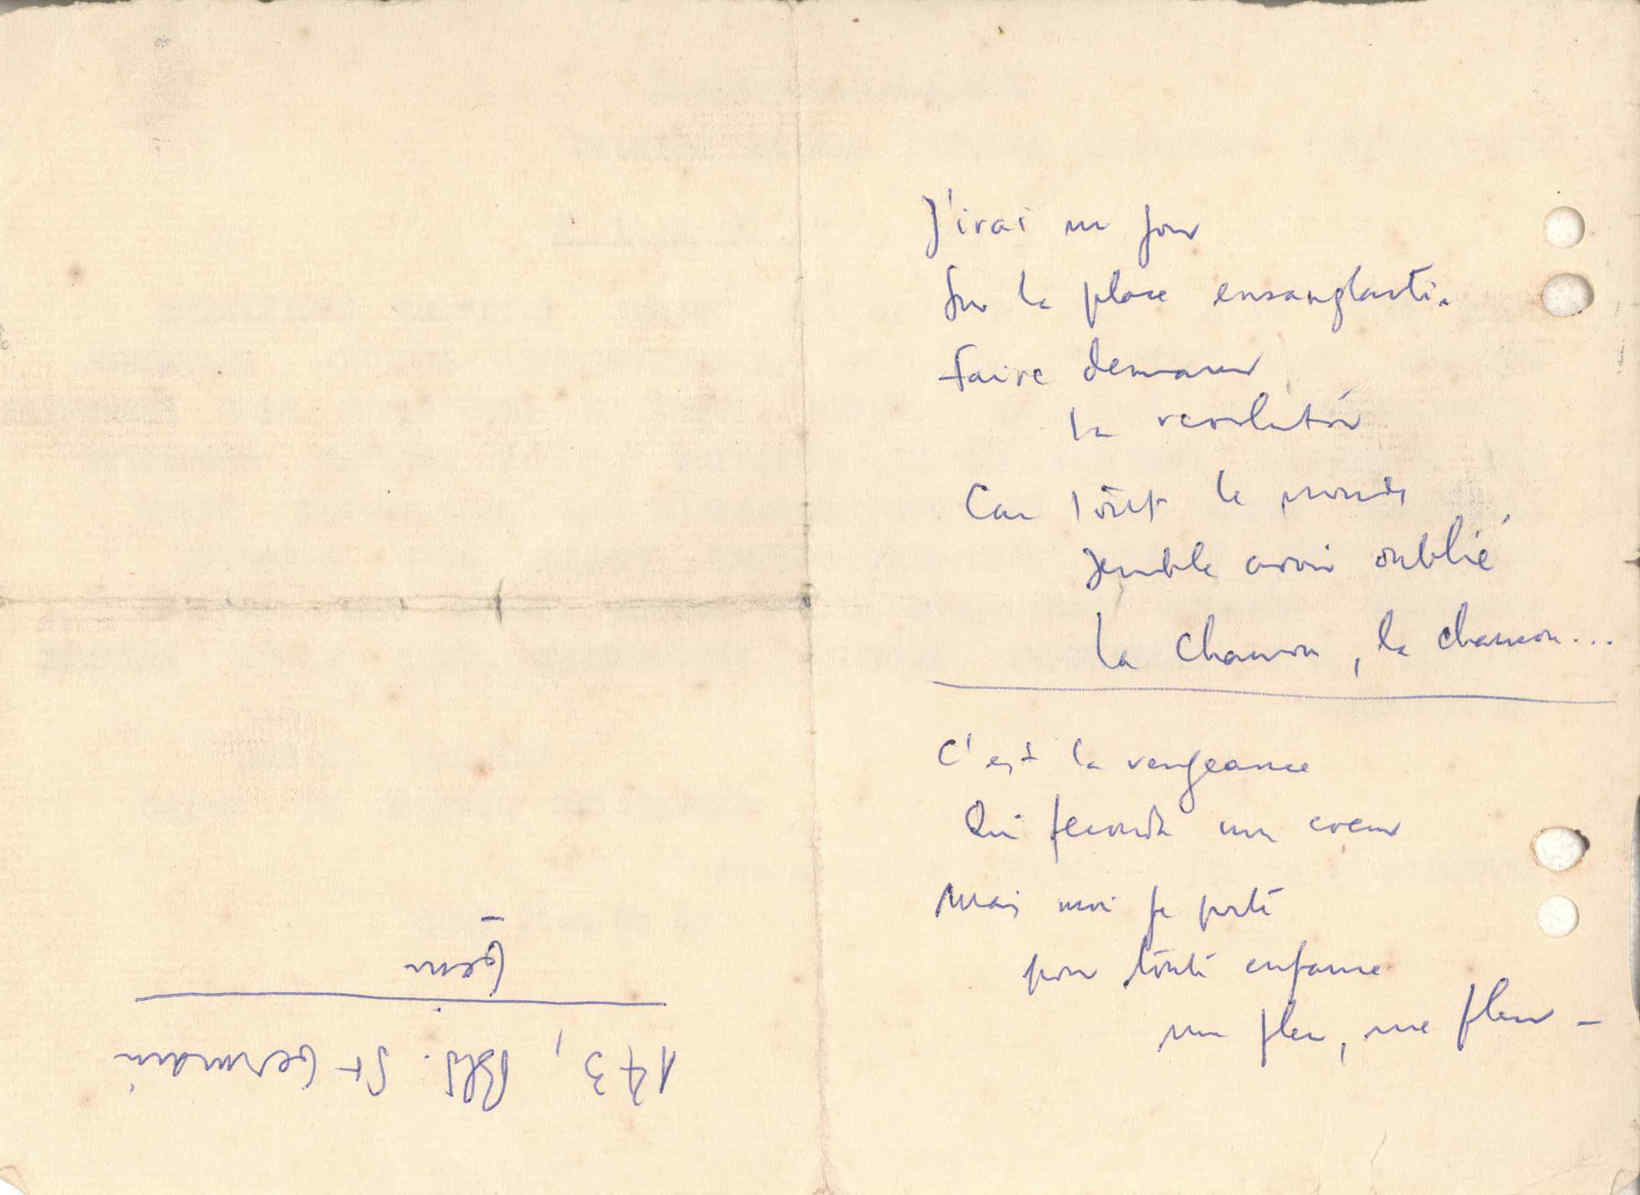 J'irai un jour
Sur la place ensanglantée
faire demarer
la revolution
Car tout le monde
semble avoir oublié
la chanson, la chanson...
C'est la vengeance
Qui feconde mon coeur
Mais moi je porte
pour toute enfance
une fleur, une fleur -
173, Bld. St Germain